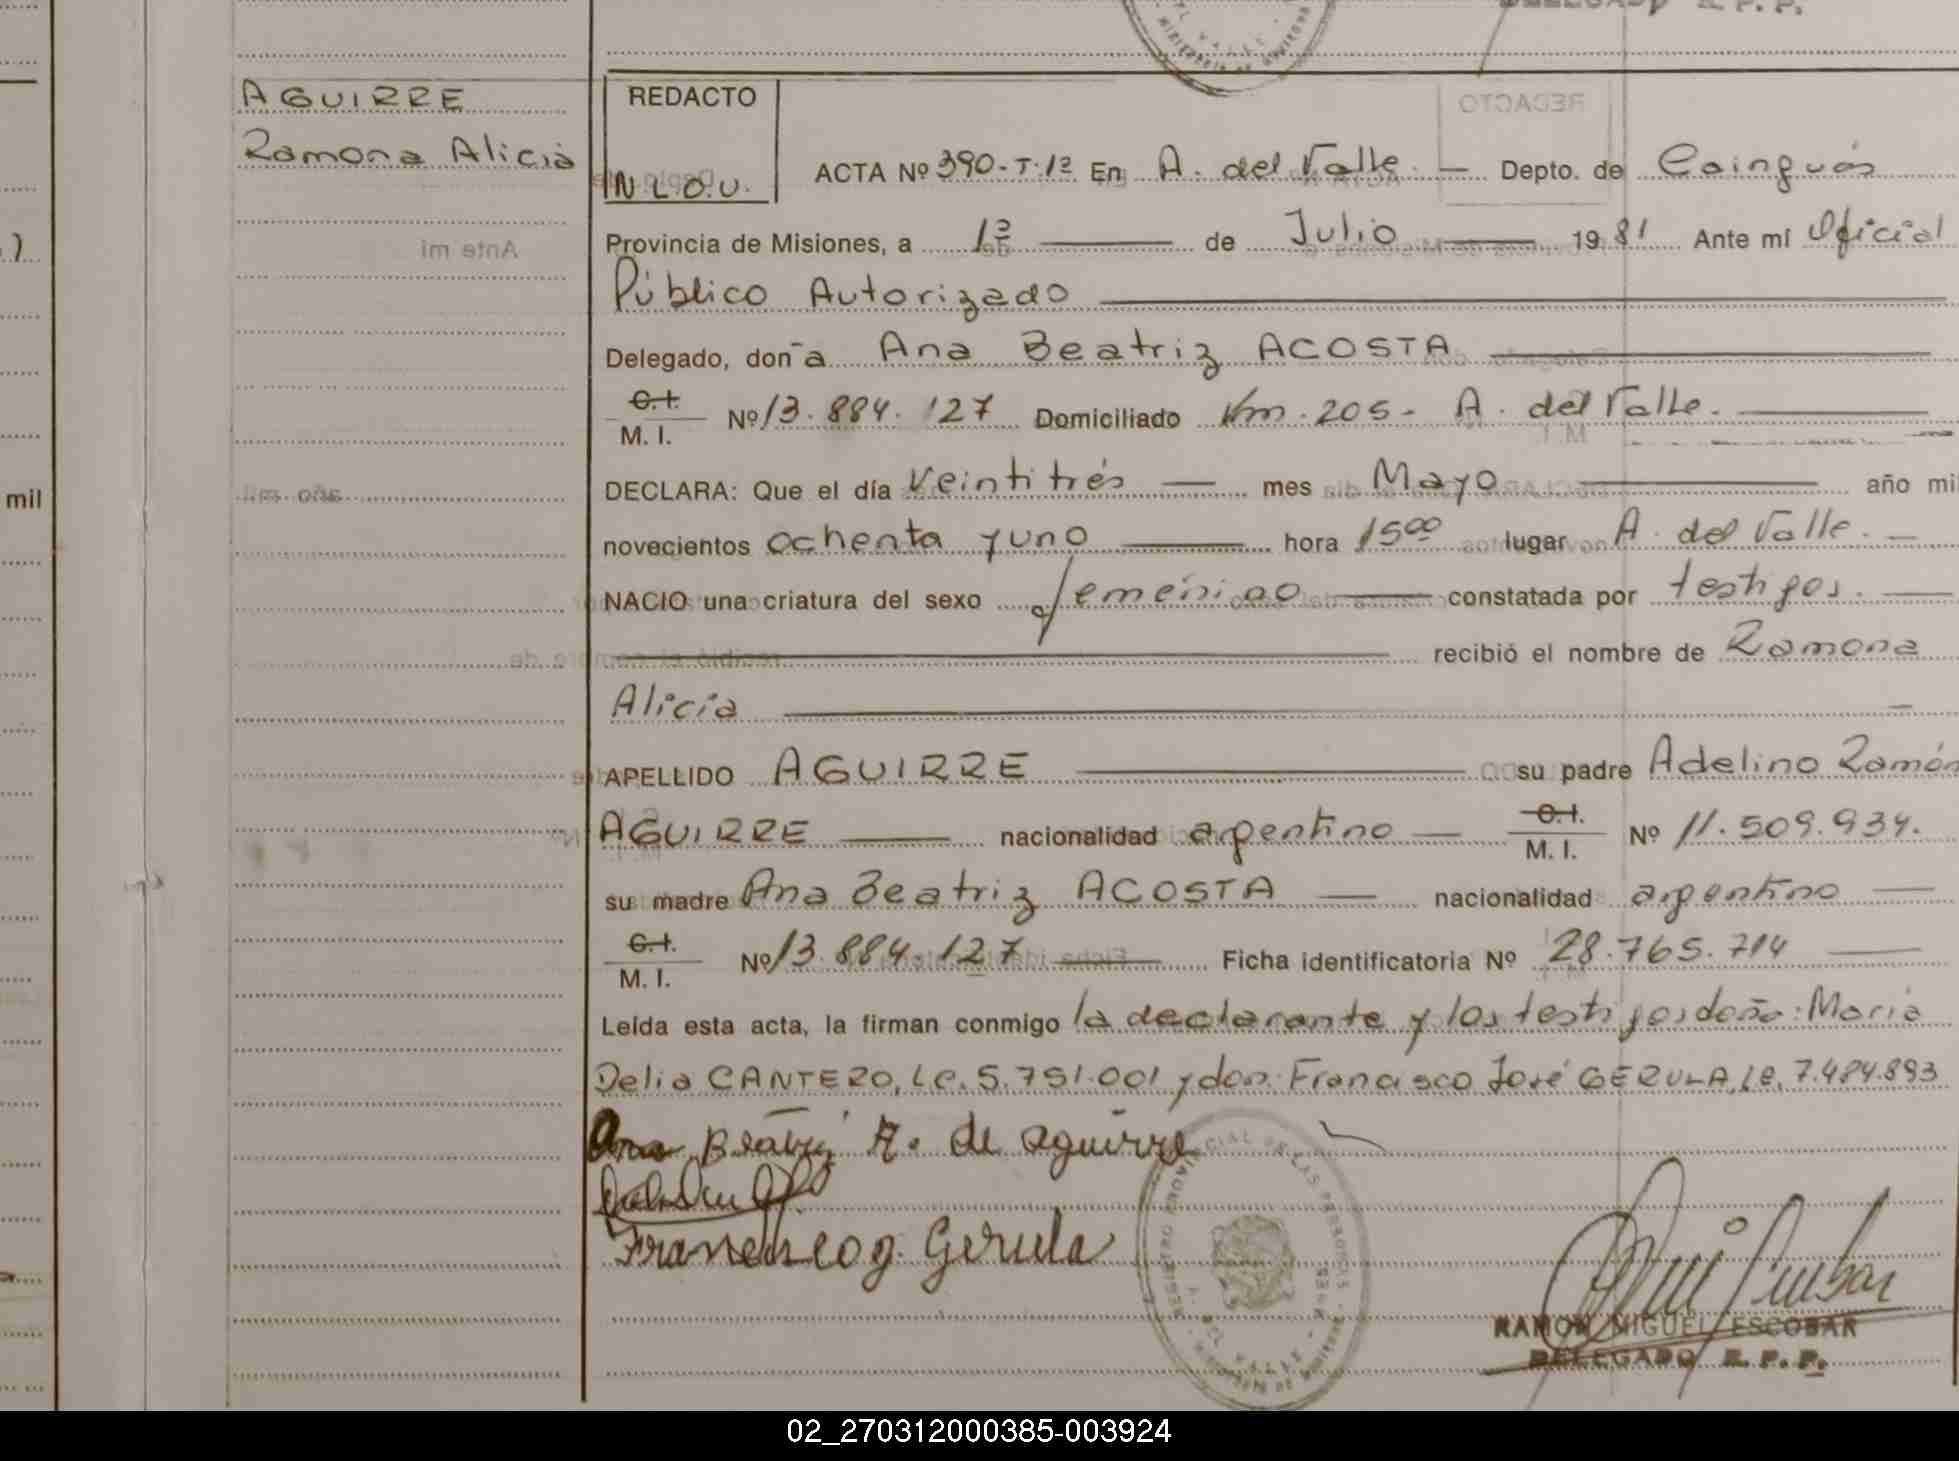 DELEGADO R. P. P.
AGUIRRE
Ramona Alicia
REDACTO
N.L.O.U.
ACTA Nº 390-T-1º En A. del Valle. — Depto. de Cainguás
Provincia de Misiones, a 1º — de Julio — 1981 Ante mí Oficial
Público Autorizado
Delegado, don~a Ana Beatriz ACOSTA
C.I.
M. I. Nº 13.884.127 Domiciliado Km. 205- A. del Valle.
DECLARA: Que el día Veintitrés — mes Mayo — año mil
mil
novecientos ochenta y uno — hora 15⁰⁰ lugar A. del Valle. —
NACIO una criatura del sexo femenino — constatada por testigos. —
recibió el nombre de Ramona
Alicia
APELLIDO AGUIRRE — su padre Adelino Ramón
AGUIRRE — nacionalidad argentino — C.I.
M. I. Nº 11.509.934.
su madre Ana Beatriz ACOSTA — nacionalidad argentino —
C.I.
M. I. Nº 13.884.127 — Ficha identificatoria Nº 28.765.714 —
Leída esta acta, la firman conmigo la declarante y los testigos doña: María
Delia CANTERO, L.C. 5.751.001 y don: Francisco José GERULA, L.E. 7.484.893
Ana Beatriz A. de Aguirre
Francisco J. Gerula
REGISTRO PROVINCIAL DE LAS PERSONAS
DEL VALLE
RAMON MIGUEL ESCOBAR
DELEGADO R. P. P.
02_270312000385-003924